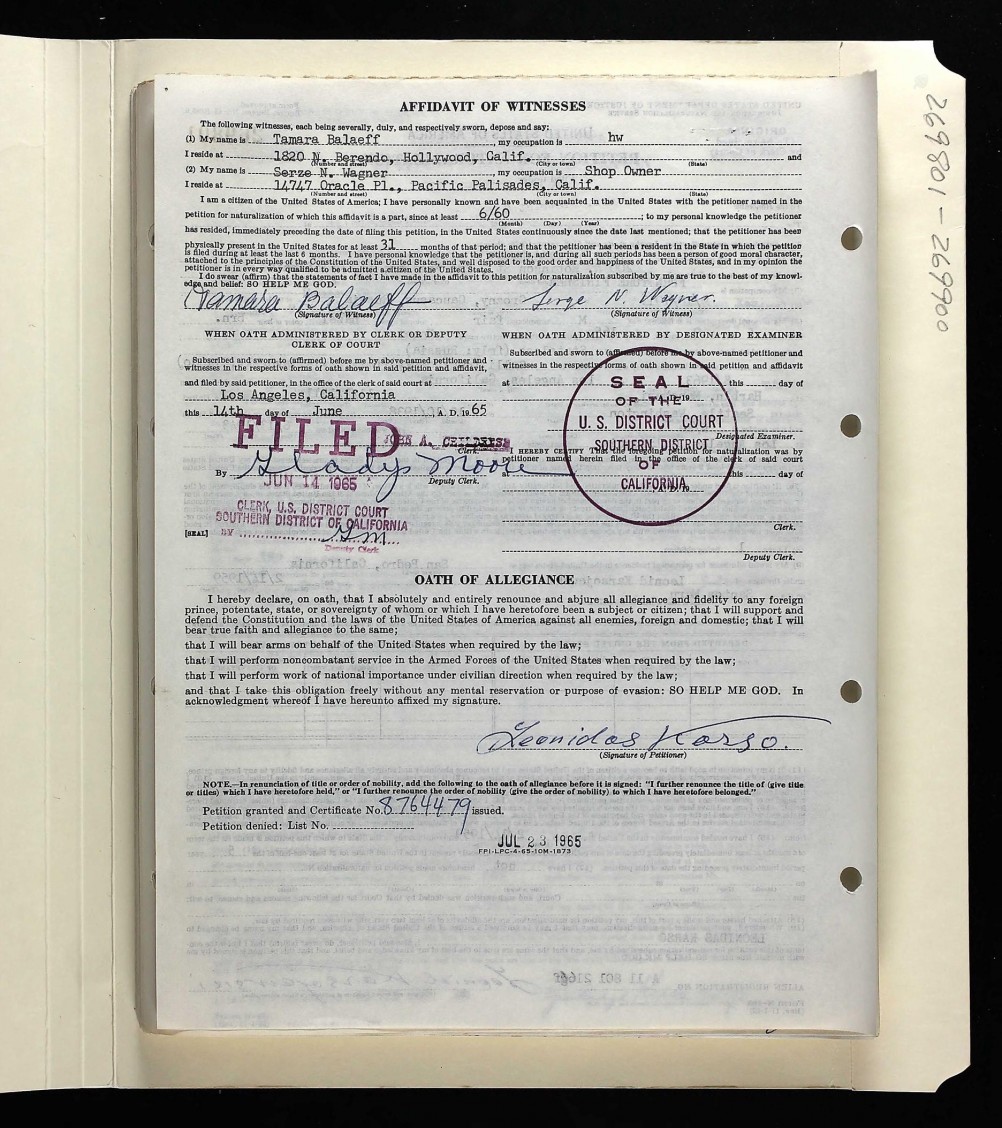 269801 - 269900
AFFIDAVIT OF WITNESSES
The following witnesses, each being severally, duly, and respectively sworn, depose and say:
(1) My name is Tamara Balaeff, my occupation is hw
I reside at 1820 N. Berendo, Hollywood, Calif. and
(Number and street) (City or town) (State)
(2) My name is Serze N. Wagner, my occupation is Shop Owner
I reside at 14747 Oracle Pl., Pacific Palisades, Calif.
(Number and street) (City or town) (State)
I am a citizen of the United States of America; I have personally known and have been acquainted in the United States with the petitioner named in the
petition for naturalization of which this affidavit is a part, since at least 6/60; to my personal knowledge the petitioner
(Month) (Day) (Year)
has resided, immediately preceding the date of filing this petition, in the United States continuously since the date last mentioned; that the petitioner has been
physically present in the United States for at least 31 months of that period; and that the petitioner has been a resident in the State in which the petition
is filed during at least the last 6 months. I have personal knowledge that the petitioner is, and during all such periods has been a person of good moral character,
attached to the principles of the Constitution of the United States, and well disposed to the good order and happiness of the United States, and in my opinion the
petitioner is in every way qualified to be admitted a citizen of the United States.
I do swear (affirm) that the statements of fact I have made in the affidavit to this petition for naturalization subscribed by me are true to the best of my knowl-
edge and belief: SO HELP ME GOD.
Tamara Balaeff Serge N. Wagner.
(Signature of Witness) (Signature of Witness)
WHEN OATH ADMINISTERED BY CLERK OR DEPUTY
CLERK OF COURT
Subscribed and sworn to (affirmed) before me by above-named petitioner and
witnesses in the respective forms of oath shown in said petition and affidavit,
and filed by said petitioner, in the office of the clerk of said court at
Los Angeles, California
this 14th day of June A. D. 1965
FILED
JOHN A. CHILDRESS
Clerk.
By Gladys Moore
Deputy Clerk.
JUN 14 1965
CLERK, U.S. DISTRICT COURT
SOUTHERN DISTRICT OF CALIFORNIA
[SEAL] BY GM
Deputy Clerk
WHEN OATH ADMINISTERED BY DESIGNATED EXAMINER
Subscribed and sworn to (affirmed) before me by above-named petitioner and
witnesses in the respective forms of oath shown in said petition and affidavit
at this day of
A. D. 19
Designated Examiner.
I HEREBY CERTIFY That the foregoing petition for naturalization was by
petitioner named herein filed in the office of the clerk of said court
at this day of
A. D. 19
Clerk.
Deputy Clerk.
SEAL
OF THE
U. S. DISTRICT COURT
SOUTHERN DISTRICT
OF
CALIFORNIA
OATH OF ALLEGIANCE
I hereby declare, on oath, that I absolutely and entirely renounce and abjure all allegiance and fidelity to any foreign
prince, potentate, state, or sovereignty of whom or which I have heretofore been a subject or citizen; that I will support and
defend the Constitution and the laws of the United States of America against all enemies, foreign and domestic; that I will
bear true faith and allegiance to the same;
that I will bear arms on behalf of the United States when required by the law;
that I will perform noncombatant service in the Armed Forces of the United States when required by the law;
that I will perform work of national importance under civilian direction when required by the law;
and that I take this obligation freely without any mental reservation or purpose of evasion: SO HELP ME GOD. In
acknowledgment whereof I have hereunto affixed my signature.
Leonidas Karso.
(Signature of Petitioner)
NOTE.—In renunciation of title or order of nobility, add the following to the oath of allegiance before it is signed: "I further renounce the title of (give title
or titles) which I have heretofore held," or "I further renounce the order of nobility (give the order of nobility) to which I have heretofore belonged."
Petition granted and Certificate No. 8764479 issued.
Petition denied: List No.
JUL 23 1965
FPI-LPC-4-65-10M-1873